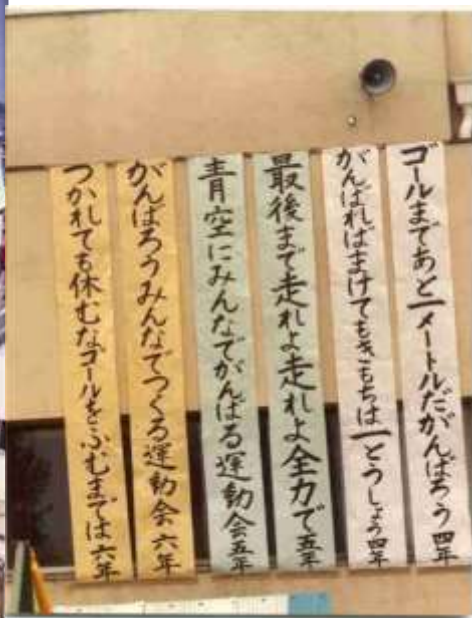 ゴールまであと一メートルだがんばろう 四年
がんばればまけてもきもちは一とうしょう 四年
最後まで走れよ走れよ全力で 五年
青空にみんなでがんばる運動会 五年
がんばろうみんなでつくる運動会 六年
つかれても休むなゴールをふむまでは 六年